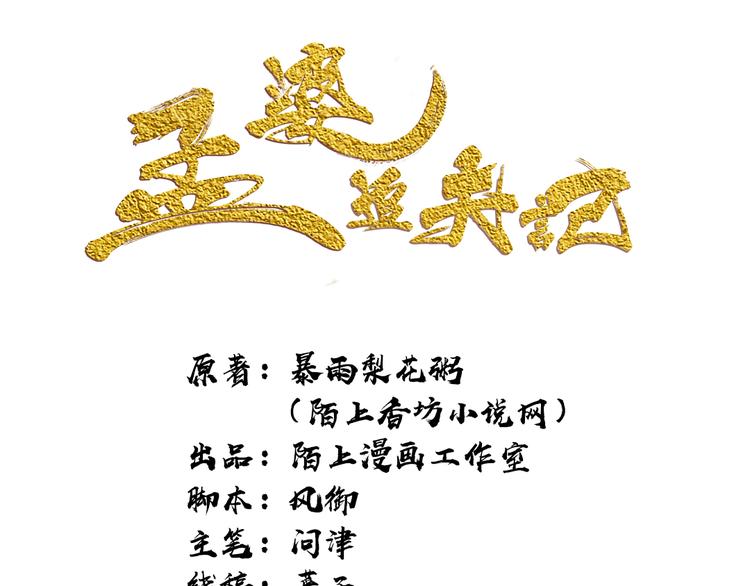 孟婆追夫记
原著：暴雨梨花粥
（陌上香坊小说网）
出品：陌上漫画工作室
脚本：风御
主笔：问津
线稿：